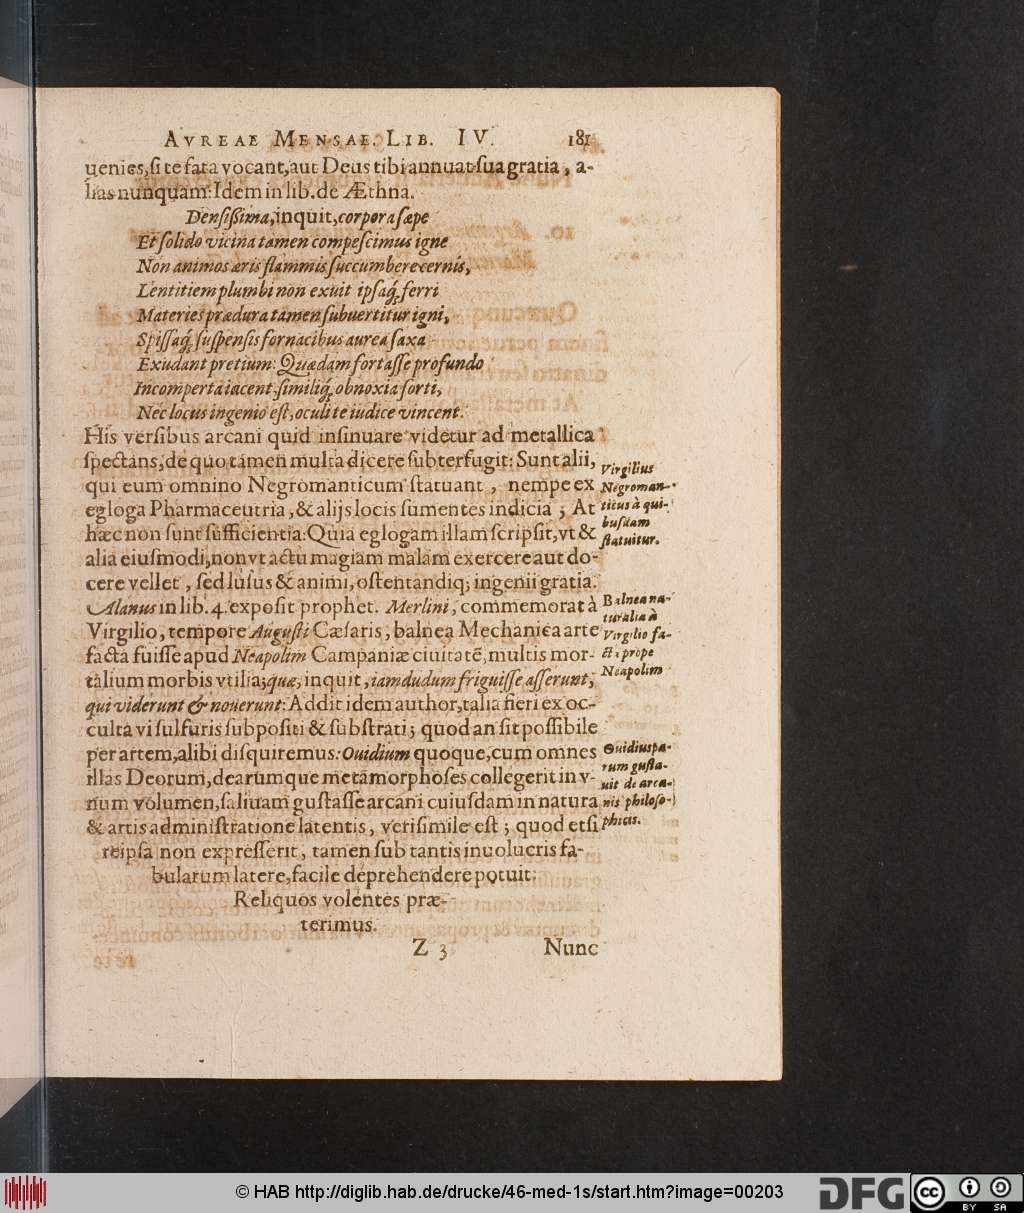 AVREAE MENSAE. LIB. IV. 181
uenies, si te fata vocant, aut Deus tibi annuat sua gratia, a-
lias nunquam: Idem in lib. de Æthna.
Densißima, inquit, corpora sæpe
Et solido vicina tamen compescimus igne
Non animos æris flammis succumbere cernis,
Lentitiem plumbi non exuit ipsaq́; ferri
Materies prædura tamen subuertitur igni,
Spissaq́; suspensis fornacibus aurea saxa
Exudant pretium: Quædam fortasse profundo
Incomperta iacent, similiq́; obnoxia sorti,
Nec locus ingenio est, oculi te iudice vincent.
His versibus arcani quid insinuare videtur ad metallica
spectans, de quo tamen multa dicere subterfugit: Sunt alii,
qui eum omnino Negromanticum statuant, nempe ex
egloga Pharmaceutria, & alijs locis sumentes indicia; At
hæc non sunt sufficientia: Quia eglogam illam scripsit, vt &
alia eiusmodi, non vt actu magiam malam exercere aut do-
cere vellet, sed lusus & animi, ostentandiq; ingenii gratia.
Alanus in lib. 4. exposit prophet. Merlini, commemorat à
Virgilio, tempore Augusti Cæsaris, balnea Mechanica arte
facta fuisse apud Neapolim Campaniæ ciuitatẽ, multis mor-
talium morbis vtilia; quæ, inquit, iamdudum friguisse asserunt,
qui viderunt & nouerunt: Addit idem author, talia fieri ex oc-
culta vi sulfuris suppositi & substrati; quod an sit possibile
per artem, alibi disquiremus: Ouidium quoque, cum omnes
illas Deorum, dearumque metamorphoses collegerit in v-
num volumen, saliuam gustasse arcani cuiusdam in natura
& artis administratione latentis, verisimile est; quod etsi
reipsa non expresserit, tamen sub tantis inuolucris fa-
bularum latere, facile deprehendere potuit.
Reliquos volentes præ-
terimus.
Z 3 Nunc
Virgilius
Negroman-
ticus à qui-
busdam
statuitur.
Balnea na-
turalia à
Virgilio fa-
cta prope
Neapolim
Ouidius pa-
rum gusta-
uit de arca-
nis philoso-
phicis.
© HAB http://diglib.hab.de/drucke/46-med-1s/start.htm?image=00203
DFG
cc BY SA